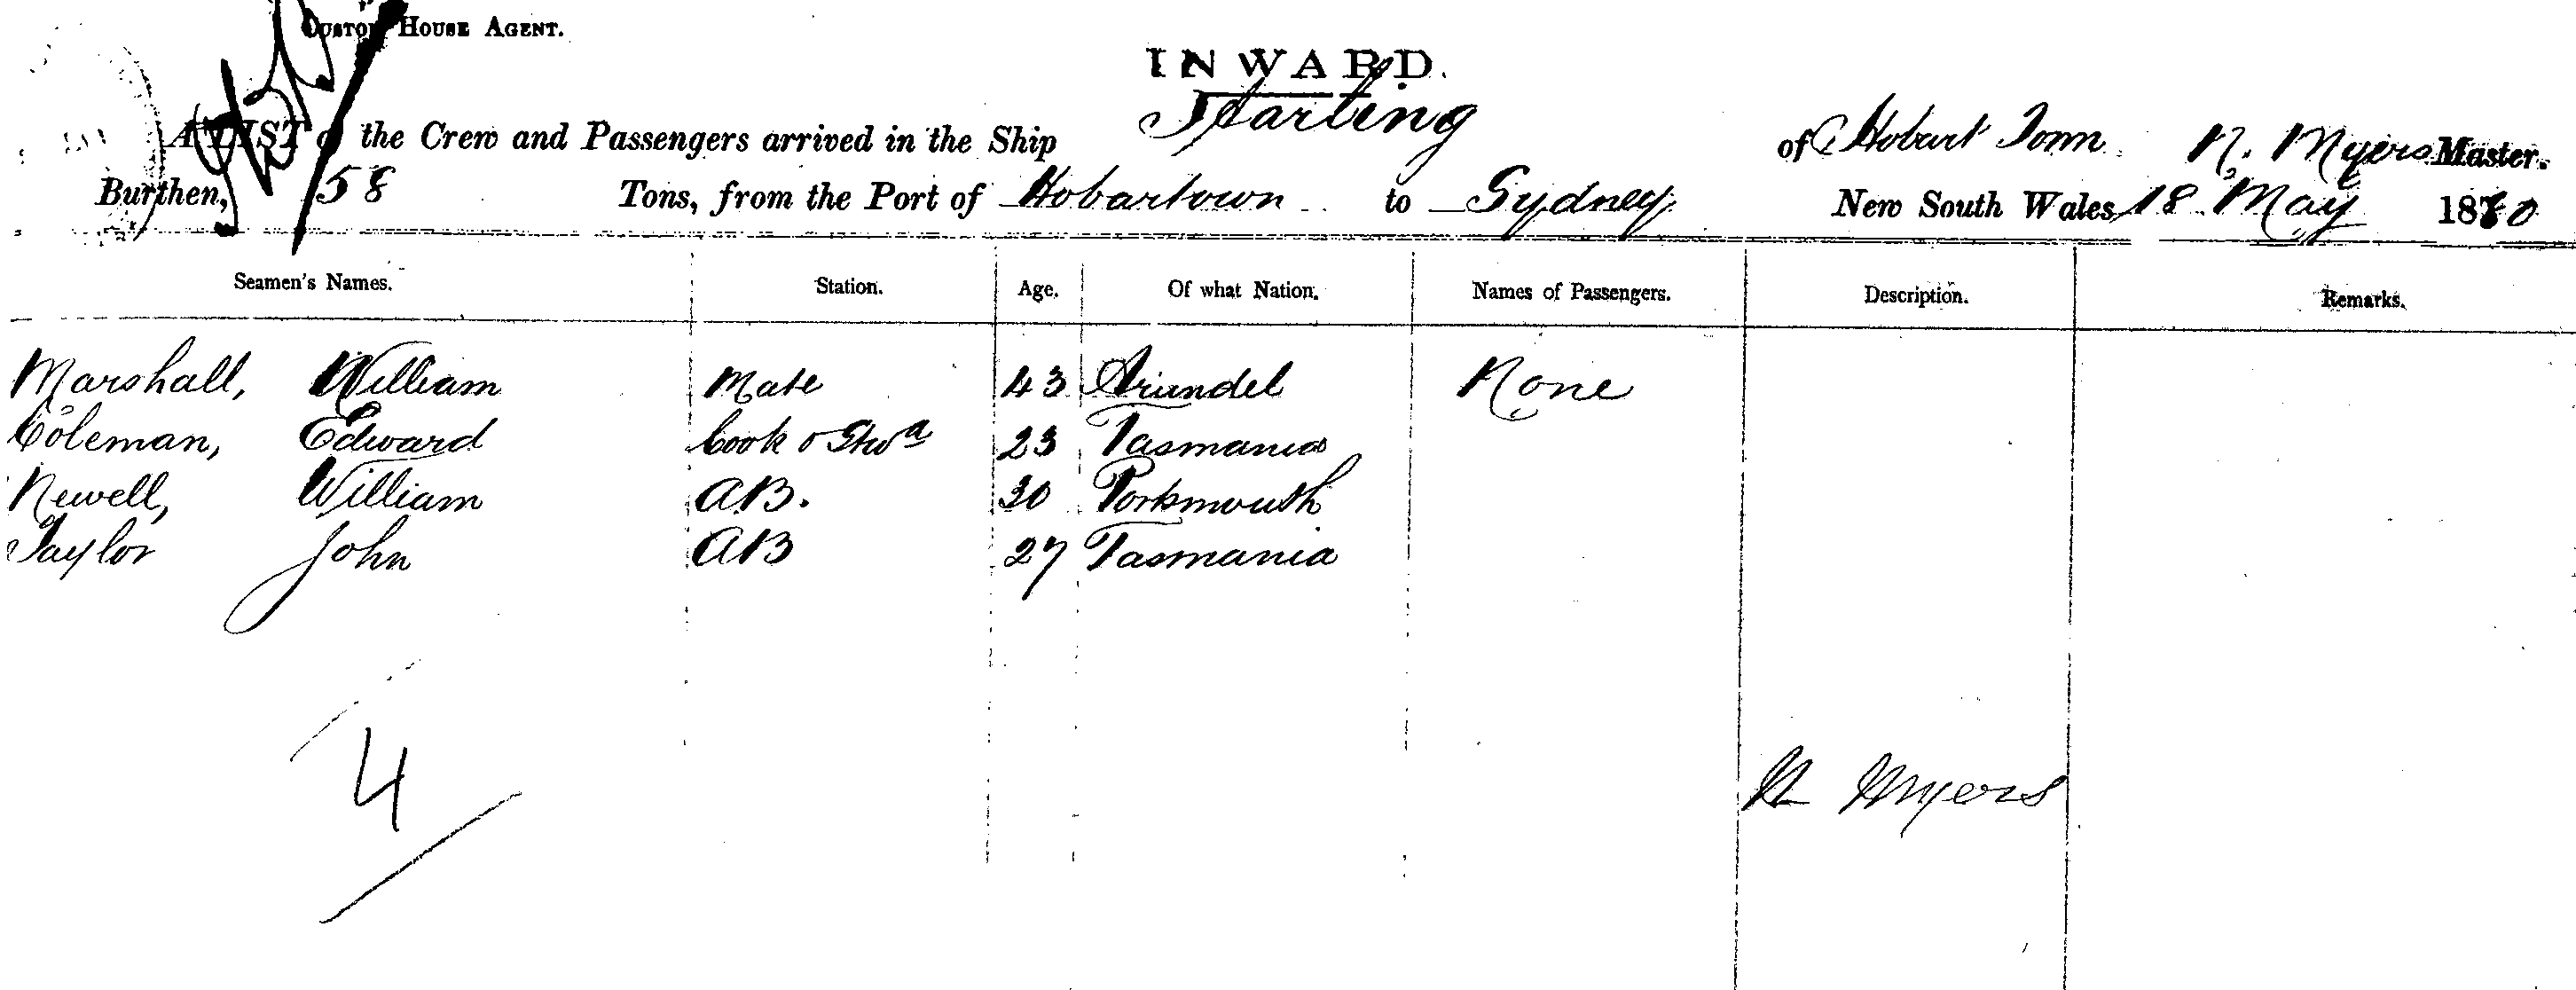 CUSTOM HOUSE AGENT.
INWARD.
A LIST of the Crew and Passengers arrived in the Ship Starling of Hobart Town N. Myers Master.
Burthen, 58 Tons, from the Port of Hobartown to Sydney New South Wales, 18 May 1880
Seamen's Names. Station. Age. Of what Nation. Names of Passengers. Description. Remarks.
Marshall, William Mate 43 Arundel None
Coleman, Edward Cook & Stwd 23 Tasmania
Newell, William A.B. 30 Portsmouth
Taylor John AB 27 Tasmania
4
Myers